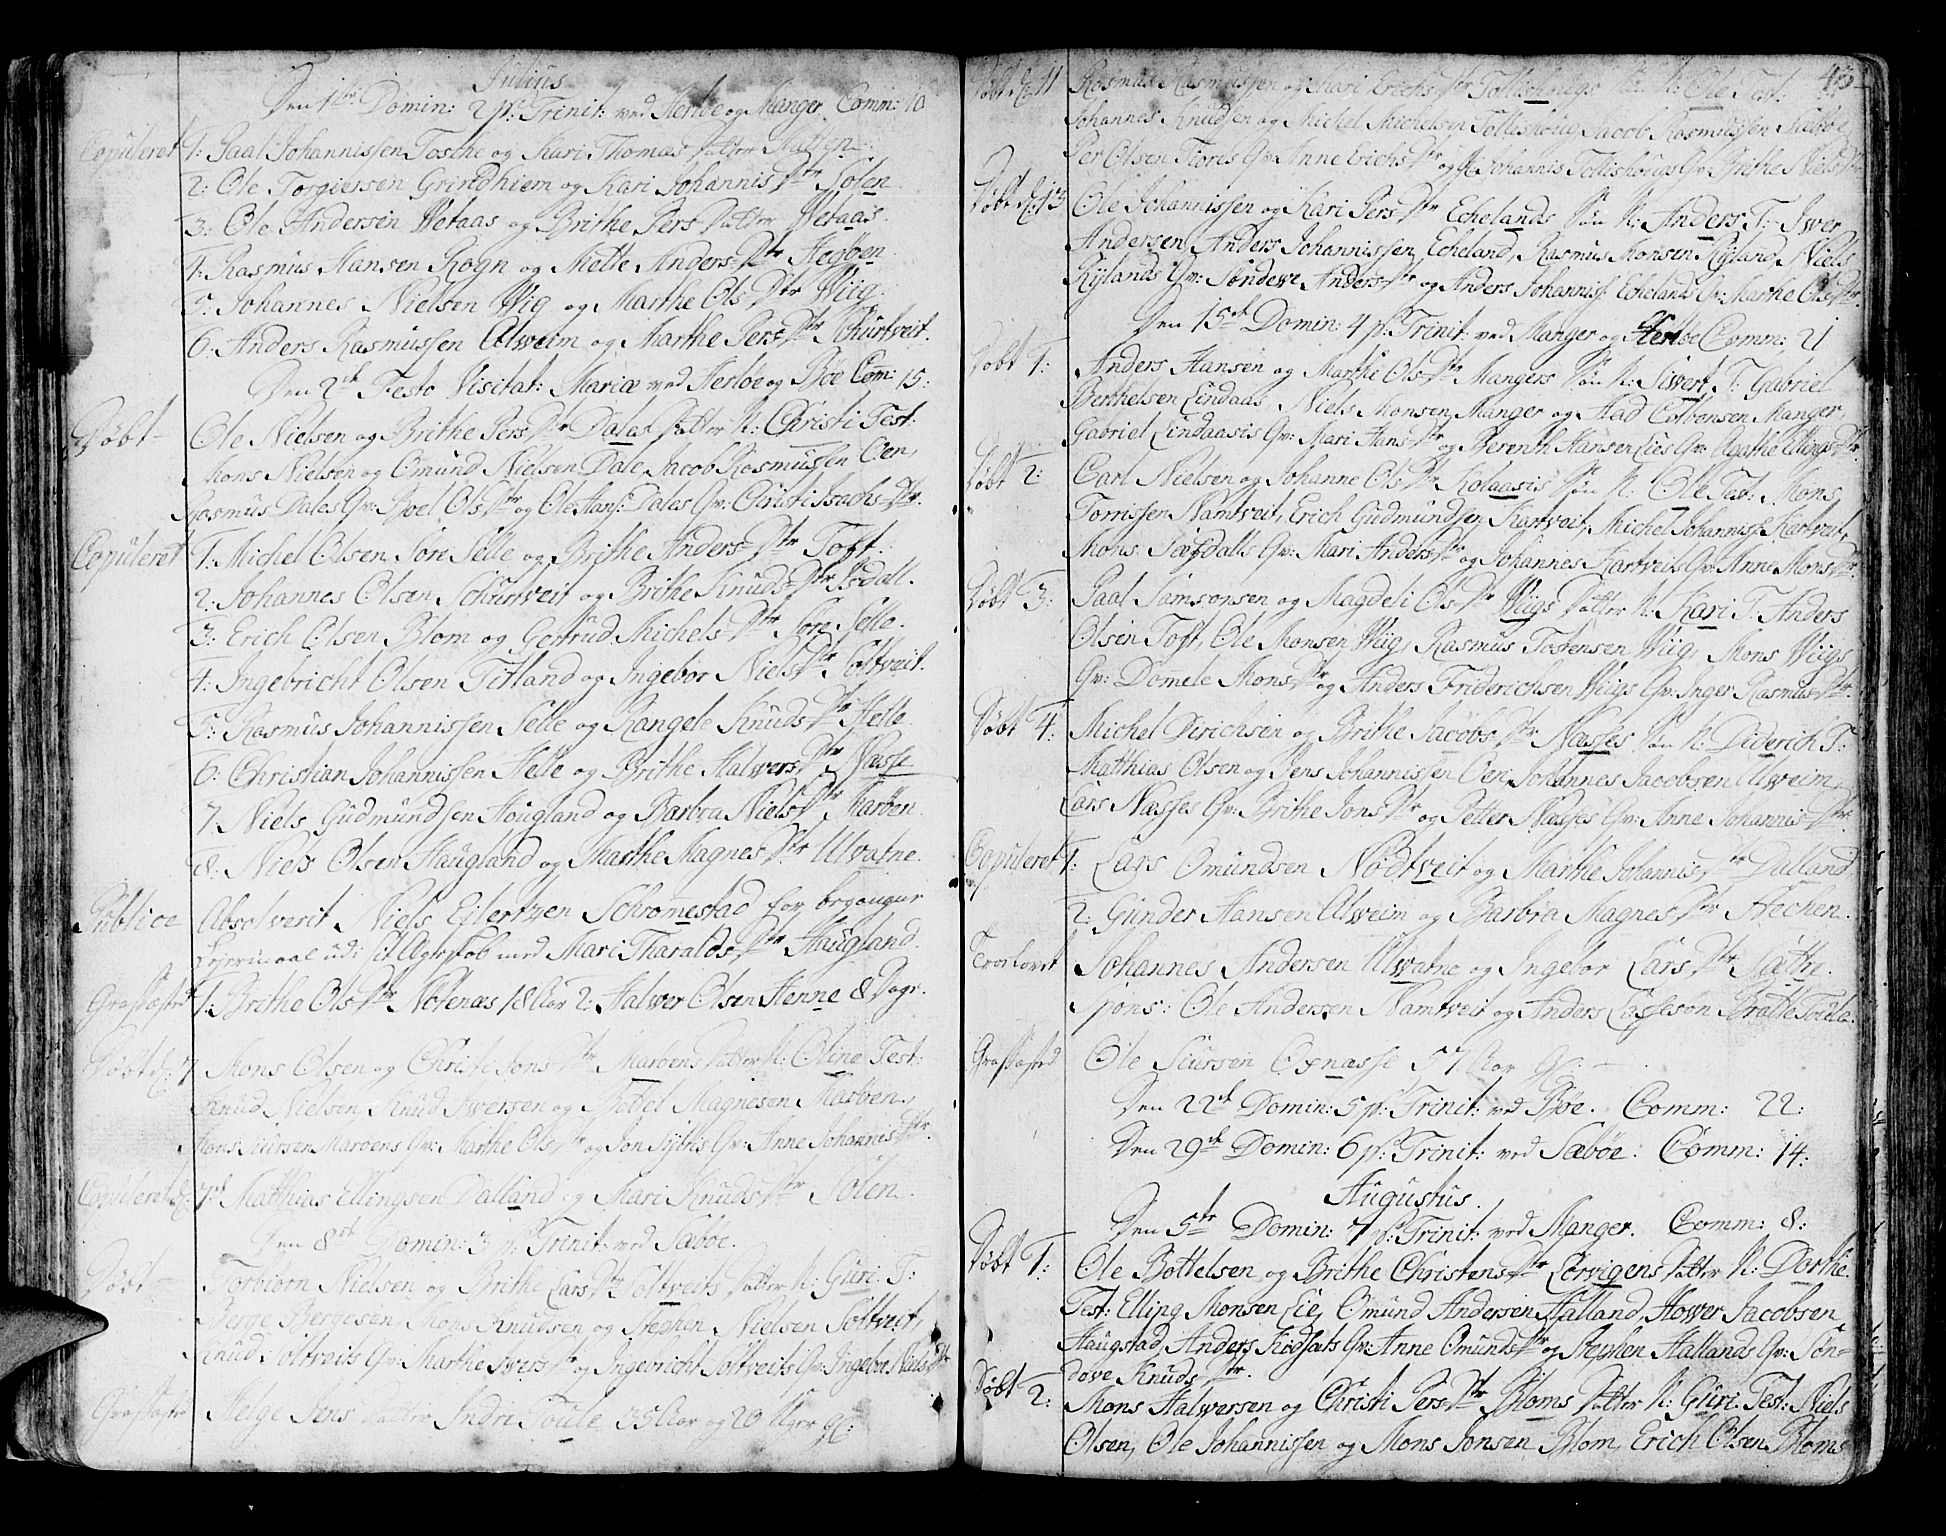 Julius
Den 1ste Domin: 2 p: Trinit: ved Herløe og Manger. Comm: 10
Copuleret 1: Paal Johannissen Tosche og Kari Thomæs Datter
2: Ole Torgiersen Grindhiem og Kari Johannis Dtr Solen
3: Ole Andersen Wetaas og Brithe Pers Datter Wetaas.
4: Rasmus Hansen Rogn og Mette Anders Dtr Hegøen
5: Johannes Nielsen Wiig og Marthe Ols Dtr Wiig.
6: Anders Rasmussen Alweim og Marthe Pers Dtr Schurtveit.
Den 2den Festo Visitat: Mariæ ved Herløe og Bøe Com: 15:
Døbt Ole Nielsen og Brithe Pers Dtr Dales Datter N: Christi Test:
Mons Nielsen og Omund Nielsen Dale Jacob Rasmussen Oen,
Rasmus Dales Qv: Boel Ols Dtr og Ole Hans: Dales Qv: Christi Isachs Dtr.
Copuleret 1: Michel Olsen Søre Selle og Brithe Anders Dtr Toft.
2: Johannes Olsen Schurtveit og Brithe Knuds Dtr Isdall.
3: Erich Olsen Blom og Gertrud Michels Dtr Søre Selle.
4: Ingebricht Olsen Titland og Ingebor Niels Dtr Soltveit.
5: Rasmus Johannissen Selle og Rangele Knuds Dtr Helle.
6: Christian Johannissen Helle og Brithe Halvers Dtr Næsse
7 Niels Gudmundsen Hougland og Barbra Niels Dtr Marøen
8: Niels Olsen Haugland og Marthe Magnes Dtr Ulvatne.
Publice Absolverit Niels Eilertzen Schromestad for begangne
Leyermaal ud: Ægteskab med Mari Tharalds Dtr Haugland.
Græsfæstet 1: Brithe Ols Dtr Notenæs 18 Aar 2: Halwer Olsen Henne 8 Dage.
Døbt d: 7 Mons Olsen og Christi Jons Dtr Marøens Datter N: Oline Test:
Knud Nielsen, Knud Iwersen og Bottel Magnesen Marøen,
Mons Siursen Marøens Qv: Marthe Ols Dtr og Jon Qv: Anne Johannis Dtr.
Copuleret d: 7de Matthias Ellingsen Dalland og Mari Knuds Dtr Solen
Den 8de Domin: 3 p: Trinit: ved Sæbøe.
Døbt Torbiørn Nielsen og Brithe Lars Dtr Soltveits Datter N: Guri. T:
Berge Bergesen, Mons Knudsen og Stephen Nielsen Soltveit,
Knud Soltveits Qv: Marthe Iwers Dtr og Ingebricht Soltveits Qv: Ingebor Niels Dtr
Græsfæstet Helge Jons Datter Indre 35 Aar og 20 Uger g:
43
Døbt d: 11 Rasmus Rasmussen og Kari Erichs Dtr Søn N: Ole Test:
Johannes Knudsen og Michel Michelsen Jacob Rasmussen Sæbøe,
Per Olsen Qv: Anne Erichs Dtr og Johannis Qv: Brithe Niels Dtr
Døbt d: 13 Ole Johannissen og Kari Pers Dtr Echelands Søn N: Anders T: Iver
Andersen, Anders Johannissen Echeland, Rasmus Monsen Rylland, Niels
Rylands Qv: Søndewe Anders Dtr og Anders Johanniss: Echelands Qv: Marthe Ols Dtr.
Den 15de Domin: 4 p: Trinit: ved Manger og Herløe Comm: 21
Døbt 1: Anders Hansen og Marthe Ols Dtr Mangers Søn N: Siwert, T: Gabriel
Berthelsen Lindaas, Niels Monsen Manger og Aad Manger,
Gabriel Lindaasis Qv: Mari Hans Dtr og Berenth Hansen Lies Qv: Agathe Ellings Dtr.
Døbt 2: Carl Nielsen og Johanne Ols Dtr Kolaasis Søn N: Ole Test: Mons
Torrissen Namtveit, Erich Gudmundsen Kartveit, Michel Johanniss: Kartveit,
Mons Qv: Mari Anders Dtr og Johannes Kartveits Qv: Anne Mons Dtr.
Døbt 3: Paal Samsonsen og Magdeli Ols Dtr Wiigs Datter N: Kari T: Anders
Olsen Toft, Ole Monsen Wiig, Rasmus Tostensen Wiig, Mons Wiigs
Qv: Domele Mons Dtr og Anders Friderichsen Wiigs Qv: Inger Rasmus Dtr.
Døbt 4: Michel Dirichsen og Brithe Jacobs Dtr Næsses Søn N: Diderich T:
Matthias Olsen og Jens Johannissen Oen, Johannes Jacobsen Ulveim,
Lars Næsses Qv: Brithe Jons Dtr og Petter Næsses Qv: Anne Johannis Dtr.
Copuleret 1: Lars Omundsen Nødtveit og Marthe Johannis Dtr Dalland,
2: Gunder Hansen Alweim og Barbra Magnes Dtr Hechen.
Trolovet Johannes Andersen Ulvatne og Ingebor Lars Dtr Sæthre.
spons: Ole Andersen Namtveit og Anders Brattetoule.
Græsfæsted Ole Siursen Oxnæsse 57 Aar g:
Den 22de Domin: 5 p: Trinit: ved Bøe. Comm: 22:
Den 29de Domin: 6 p: Trinit: ved Sæbøe: Comm: 14:
Augustus.
Den 5te Domin: 7 p: Trinit: ved Manger. Comm: 8:
Døbt 1: Ole Bottelsen og Brithe Christens Dtr Lørvigens Datter N: Dorthe.
Test: Elling Monsen Lie, Omund Andersen Halland, Hower Jacobsen
Haugstad, Anders Qv: Anne Omunds Dtr og Stephen Hallands Qv: Søn=
dove Knuds Dtr.
Døbt 2: Mons Halwersen og Christi Pers Dtr Bloms Datter N: Guri. Test: Niels
Olsen, Ole Johannissen og Mons Jonsen Blom, Erich Olsen Bloms